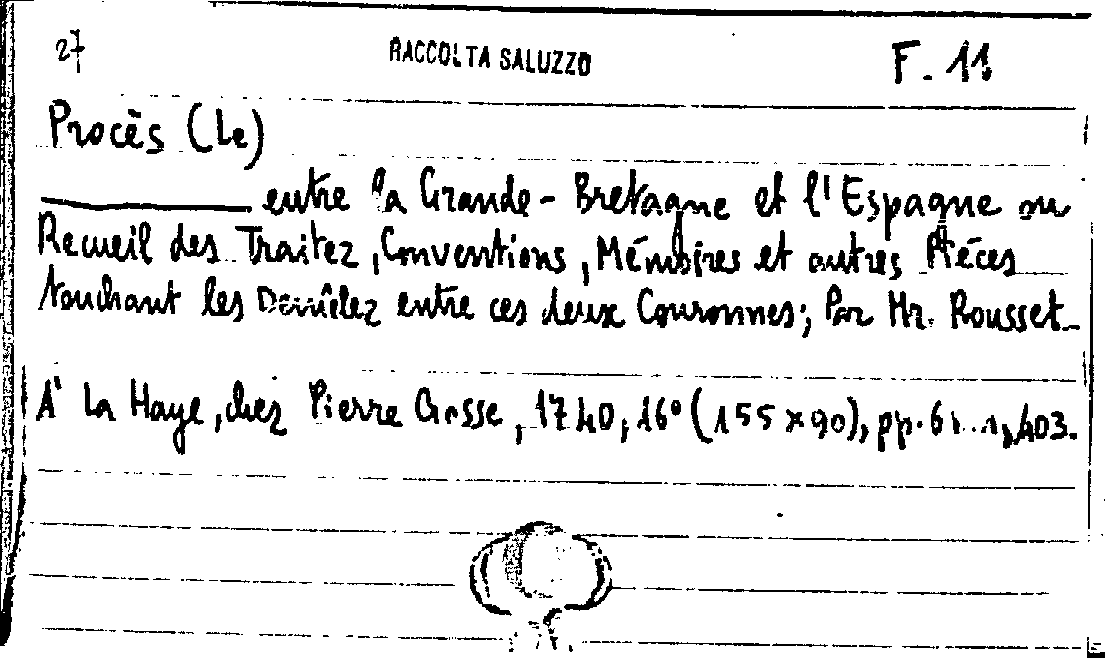 27 RACCOLTA SALUZZO F. 11
Procès (Le)
entre la Grande-Bretagne et l'Espagne ou
Recueil des Traitez, Conventions, Mémoires et autres Piéces
touchant les Demêlez entre ces deux Couronnes; Par Mr. Rousset.
A' La Haye, chez Pierre Gosse, 1740, 16° (155x90), pp. 403.